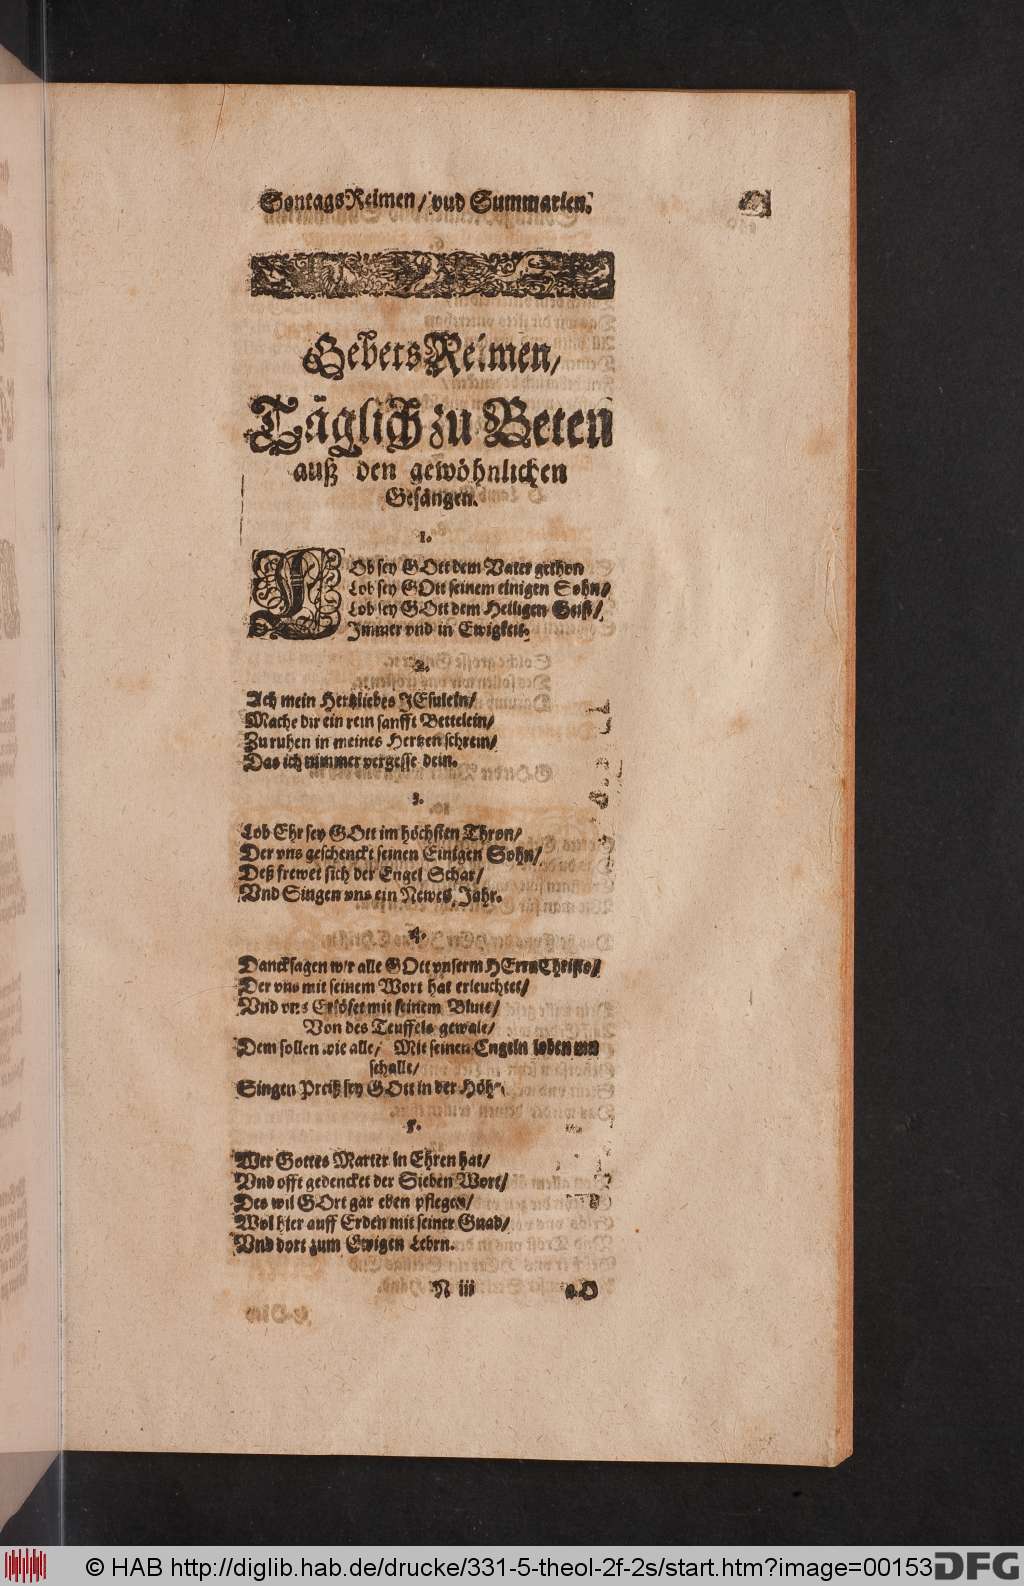 SontagsReimen/ vnd Summarien.
GebetsReimen/
Täglich zu Beten
auß den gewöhnlichen
Gesängen.
1.
LOb sey GOtt dem Vater gethon
Lob sey GOtt seinem einigen Sohn/
Lob sey GOtt dem Heiligen Geist/
Immer vnd in Ewigkeit.
2.
Ach mein Hertzliebes JEsulein/
Mache dir ein rein sanfft Bettelein/
Zu ruhen in meines Hertzen schrein/
Das ich nimmer vergesse dein.
3.
Lob Ehr sey GOtt im höchsten Thron/
Der vns geschenckt seinen Einigen Sohn/
Deß frewet sich der Engel Schar/
Vnd Singen vns ein Newes Jahr.
4.
Dancksagen wir alle GOtt vnserm HErrn Christo/
Der vns mit seinem Wort hat erleuchtet/
Vnd vns Erlöset mit seinem Blute/
Von des Teuffels gewalt/
Dem sollen wie alle/ Mit seinen Engeln loben mit
schalle/
Singen Preiß sey GOtt in der Höh
5.
Wer Gottes Marter in Ehren hat/
Vnd offt gedencket der Sieben Wort/
Des wil GOtt gar eben pflegen/
Wol hier auff Erden mit seiner Gnad/
Vnd dort zum Ewigen Lebrn.
N iii
© HAB http://diglib.hab.de/drucke/331-5-theol-2f-2s/start.htm?image=00153
DFG